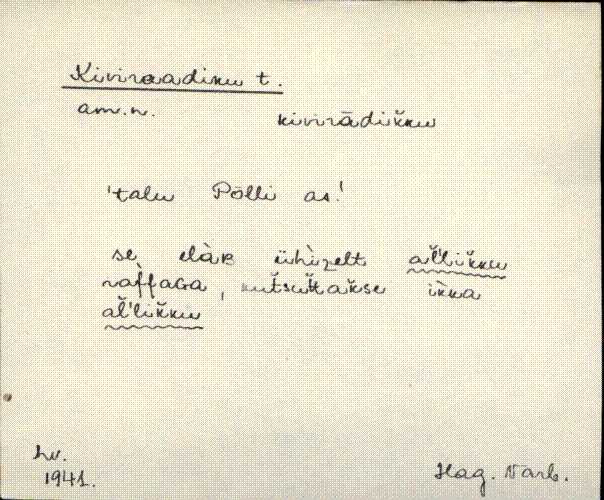 Kiviraadiku t.
am.n. kivirādik̆ku
'talu Põlli as.'
se elàʙ ühìʒelt al̆'lik̆ku
raffaGa, kut̆sut̆akse ikka
al̆'lik̆ku
hv.
1941.
Hag. Varb.